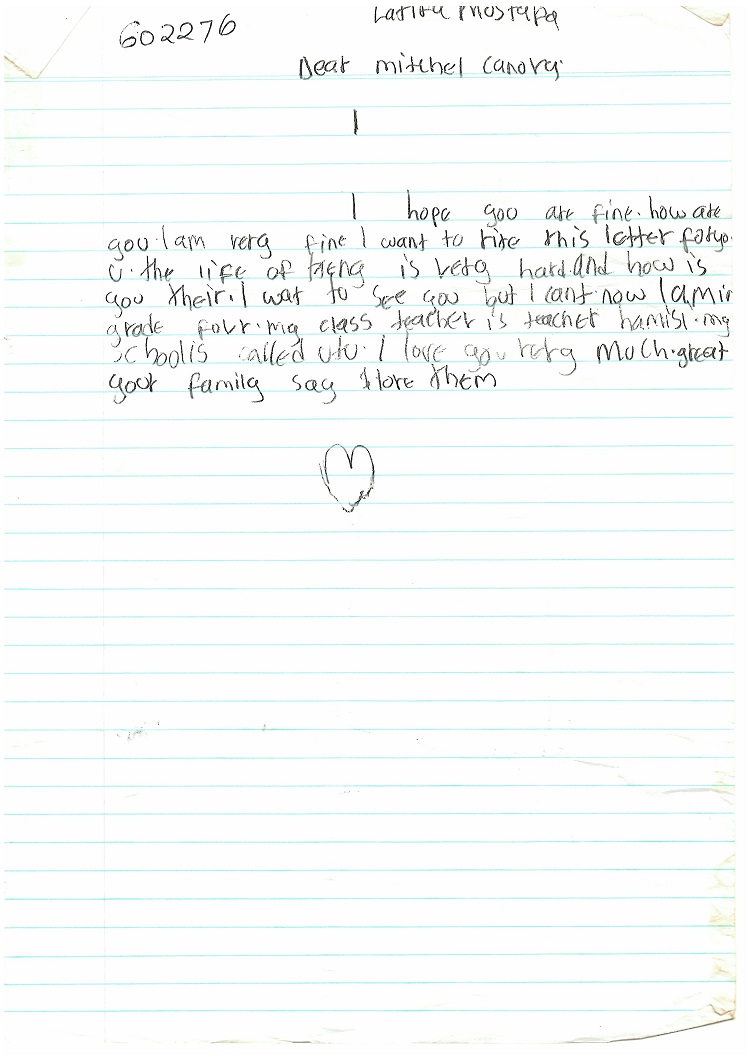 602276
Mustapa
Dear mitchel canova
I
I hope you are fine. how are
you. I am very fine I want to rite this letter for yo.
u. the life of is very hard. and how is
you their. I wat to see you but I cant. now I am in
grade four. my class teacher is teacher hamisi. my
school is called utu. I love you very much. great
your family say I love them